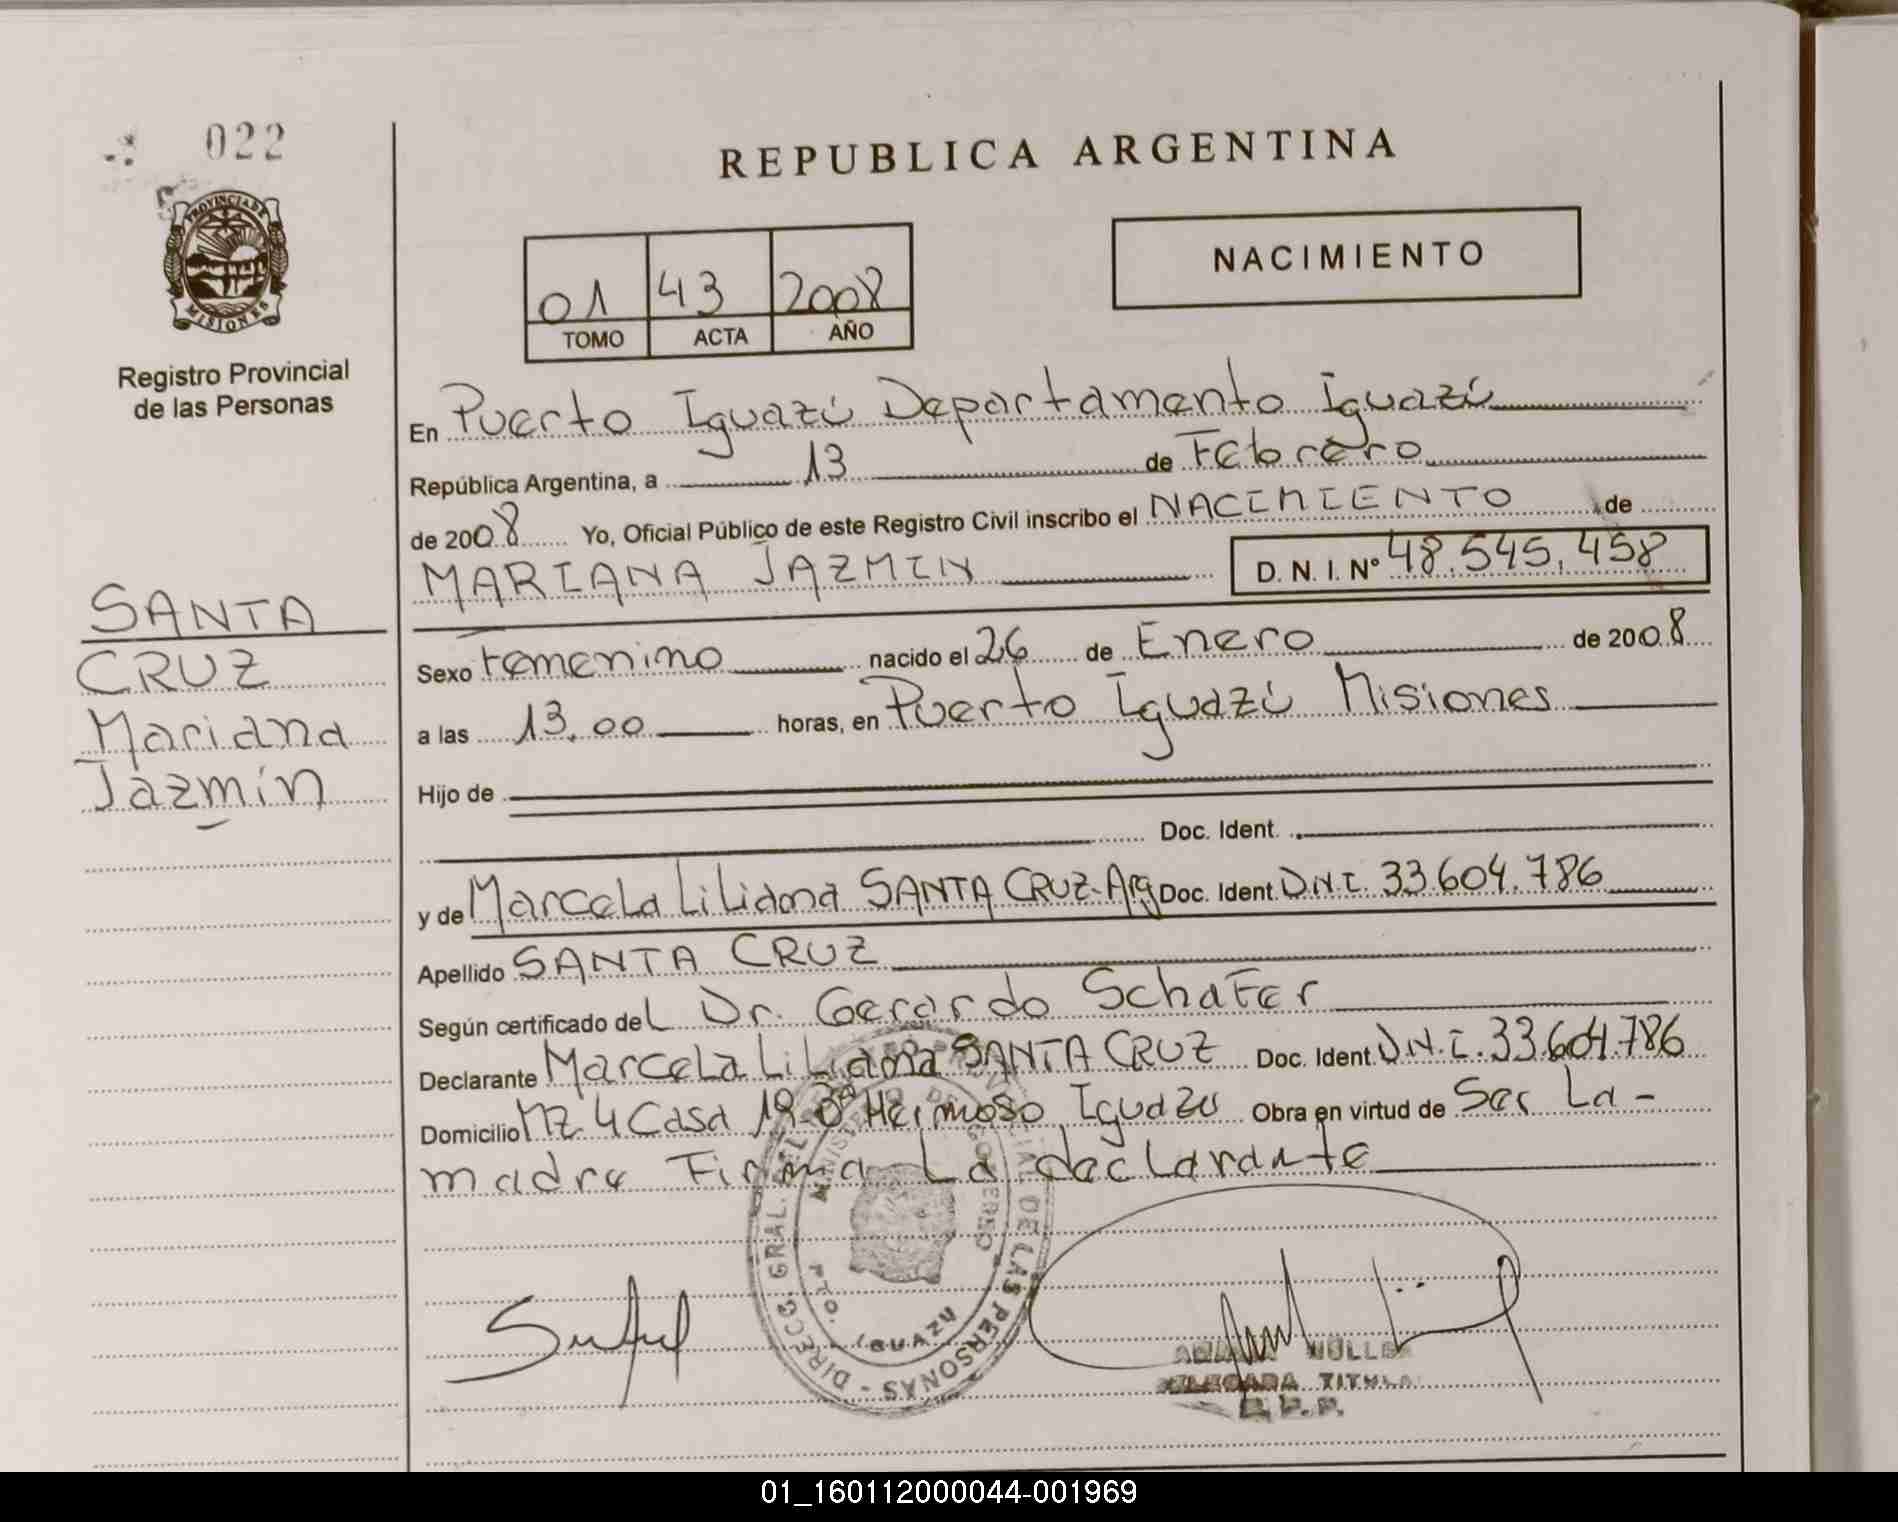 022
PROVINCIA DE
MISIONES
Registro Provincial
de las Personas
SANTA
CRUZ
Mariana
Jazmín
REPUBLICA ARGENTINA
01 43 2008
TOMO ACTA AÑO
NACIMIENTO
En Puerto Iguazú Departamento Iguazú
República Argentina, a 13 de Febrero
de 2008 Yo, Oficial Público de este Registro Civil inscribo el NACIMIENTO de
MARIANA JAZMIN D. N. I. Nº 48.545.458
Sexo Femenino nacido el 26 de Enero de 2008
a las 13.00 horas, en Puerto Iguazú Misiones
Hijo de
Doc. Ident.
y de Marcela Liliana SANTA CRUZ-Arg Doc. Ident. D.N.I. 33.604.786
Apellido SANTA CRUZ
Según certificado del Dr. Gerardo Schafer
Declarante Marcela Liliana SANTA CRUZ Doc. Ident. D.N.I. 33.604.786
Domicilio Mz 4 Casa 19 Bº Hermoso Iguazu Obra en virtud de Ser La -
madre Firma La declarante
DIRECC. GRAL. DE LAS PERSONAS
MINISTERIO DE GOBIERNO
PTO. IGUAZU
MULLER
TITULAR
01_160112000044-001969